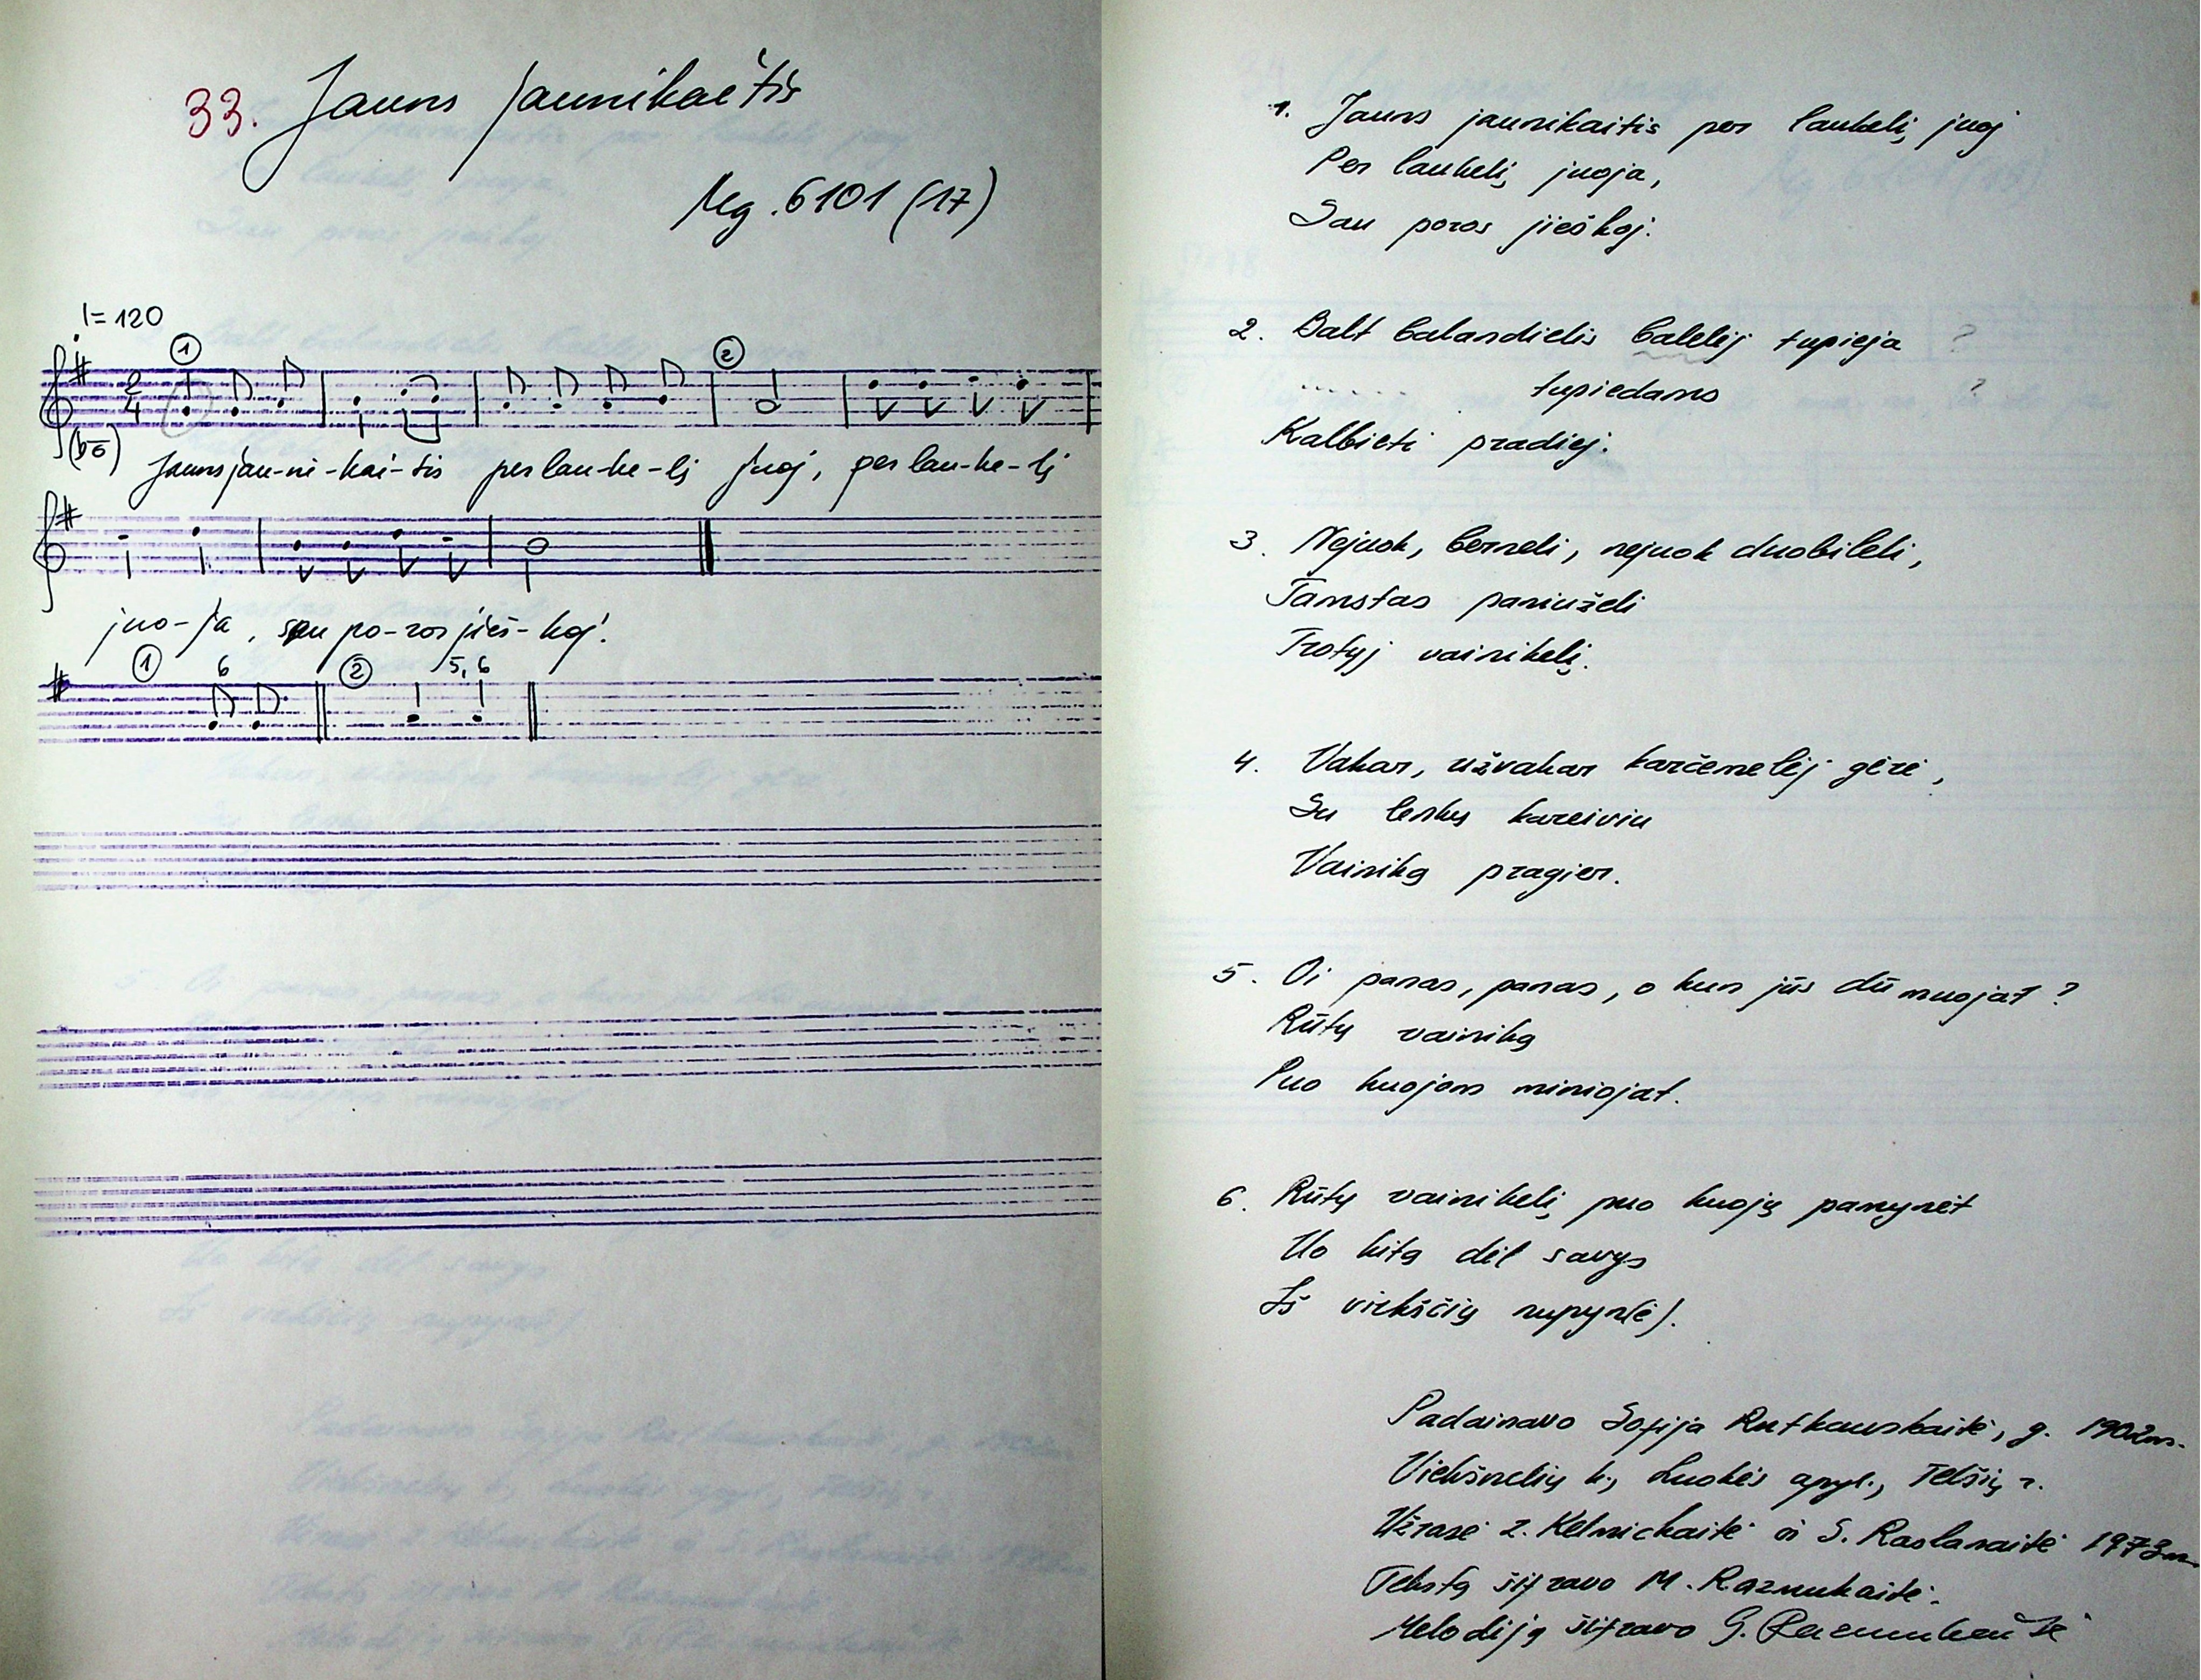 33. Jauns jaunikaitis
Mg. 6101 (17)
♩= 120
① ②
2/4
Jauns jau-ni-kai-tis per lau-ke-lį juoj, per lau-ke-lį
juo-ja, sau po-ros jieš-koj.
① 6 ② 5, 6
1. Jauns jaunikaitis per laukelį juoj
Per laukelį juoja,
Sau poros jieškoj.
2. Balt balandielis balelėj tupieja ?
....... tupiedams ?
Kalbieti pradiej.
3. Nejuok, berneli, nejuok duobileli,
Tamstas paniuželi
Trotyj vainikelį.
4. Vakar, užvakar karčemelėj gėrė,
Su lenkų kareiviu
Vainiką pragier.
5. Oi panas, panas, o kun jūs dūmuojat ?
Rūtų vainiką
Puo kuojoms miniojat.
6. Rūtų vainikelį puo kuojų pamynėt
Uo kitą dėl savęs
Iš viekščių nupyn(ė).
Padainavo Sofija Rutkauskaitė, g. 1902 m.
Viekšnelių k., Luokės apyl., Telšių r.
Užrašė Z. Kelmickaitė ir S. Raslanaitė 1973 m.
Tekstą šifravo M. Razmukaitė.
Melodiją šifravo G. Razmukaitė